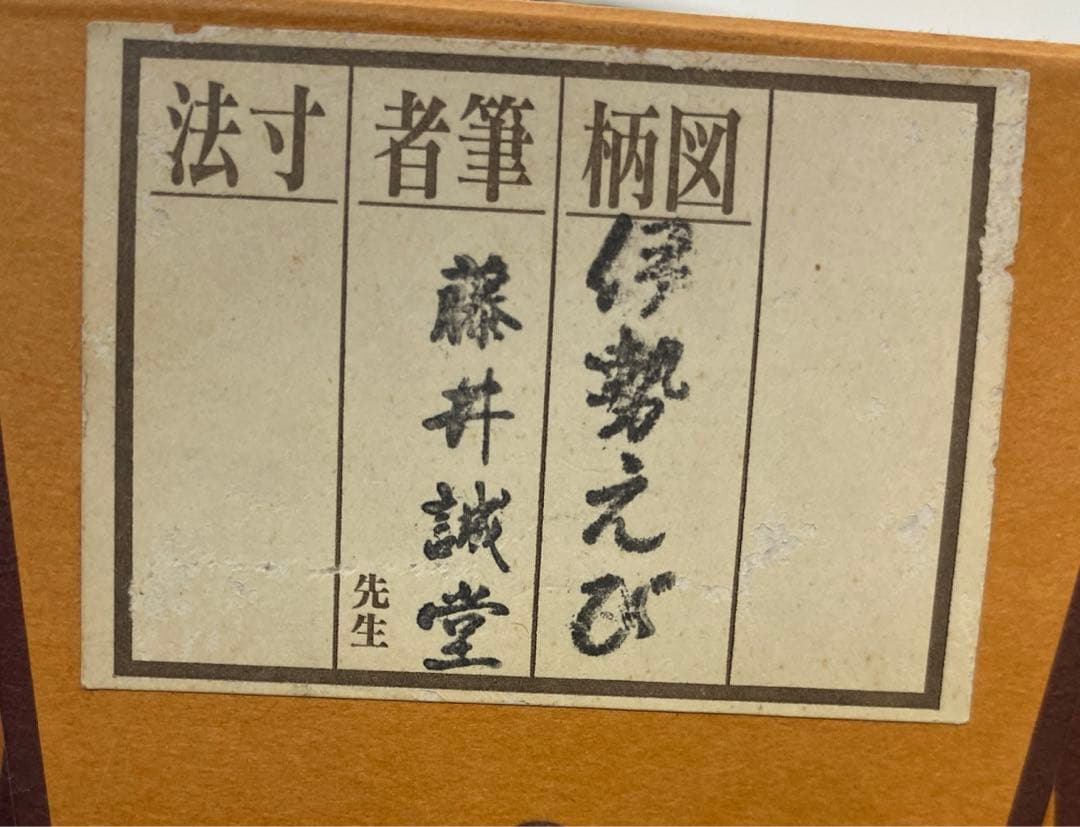 図柄
伊勢えび
筆者
藤井誠堂
先生
寸法